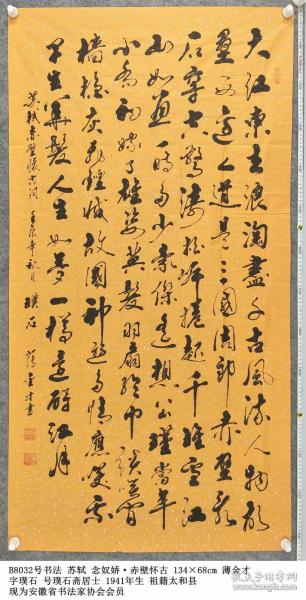 大江東去浪淘盡千古風流人物故
壘西邊人道是三國周郎赤壁亂
石穿空驚濤拍岸捲起千堆雪江
山如畫一時多少豪傑遙想公瑾當年
小喬初嫁了雄姿英發羽扇綸巾談笑間
檣櫓灰飛煙滅故國神遊多情應笑我
早生華髮人生如夢一樽還酹江月
蘇軾赤壁懷古詞 壬辰年秋月 璞石 薄金才書
B8032号书法 苏轼 念奴娇·赤壁怀古 134×68cm 薄金才
字璞石 号璞石斋居士 1941年生 祖籍太和县
现为安徽省书法家协会会员